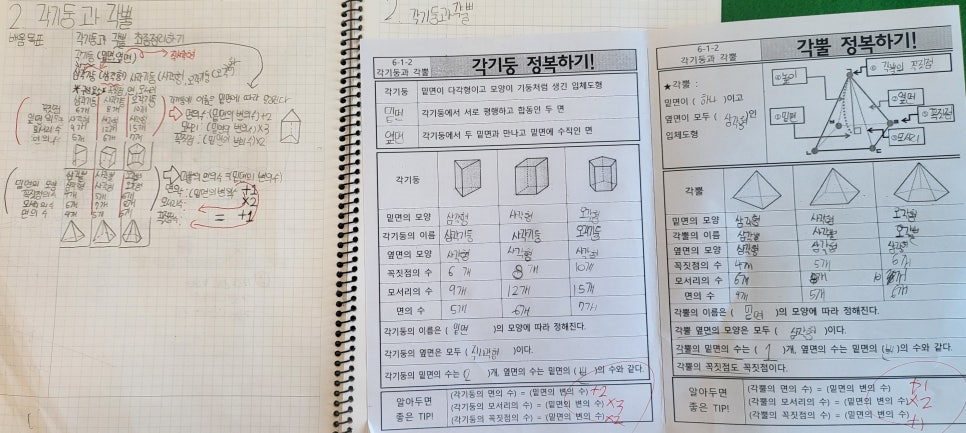 2. 각기둥과 각뿔
배움목표 각기둥과 각뿔 최종정리하기
각기둥(밑면, 옆면)
삼각기둥 사각기둥 오각기둥
6개 8개 10개
9개 12개 15개
5개 6개 7개
각기둥의 이름은 밑면에 따라 정해진다
면의 수: (밑면의 변의 수)+2
(밑면의 변의 수)×3
꼭짓점: (밑면의 변의 수)×2
밑면의 모양
꼭짓점의 수 4개 5개 6개
모서리의 수 6개
면의 수 4개 5개 6개
+1
×2
= +1
2. 각기둥과 각뿔
6-1-2
각기둥과 각뿔
각기둥 정복하기!
각기둥 밑면이 다각형이고 모양이 기둥처럼 생긴 입체도형
밑면 각기둥에서 서로 평행하고 합동인 두 면
옆면 각기둥에서 두 밑면과 만나고 밑면에 수직인 면
각기둥
밑면의 모양 삼각형 사각형 오각형
각기둥의 이름 삼각기둥 사각기둥 오각기둥
옆면의 모양 사각형 사각형 사각형
꼭짓점의 수 6개 8개 10개
모서리의 수 9개 12개 15개
면의 수 5개 6개 7개
각기둥의 이름은 ( 밑면 )의 모양에 따라 정해진다.
각기둥의 옆면은 모두 ( 직사각형 )이다.
각기둥의 밑면의 수는 ( 2 )개, 옆면의 수는 밑면의 ( 변 )의 수와 같다.
알아두면
좋은 TIP!
(각기둥의 면의 수) = (밑면의 변의 수) +2
(각기둥의 모서리의 수) = (밑면의 변의 수) ×3
(각기둥의 꼭짓점의 수) = (밑면의 변의 수) ×2
6-1-2
각기둥과 각뿔
각뿔 정복하기!
★각뿔 :
밑면이 ( 하나 )이고
옆면이 모두 ( 삼각형 )인
입체도형
높이
각뿔의 꼭짓점
옆면
꼭짓점
밑면
모서리
각뿔
밑면의 모양 삼각형 사각형 오각형
각뿔의 이름 삼각뿔 사각뿔 오각뿔
옆면의 모양 삼각형 삼각형 삼각형
꼭짓점의 수 4개 5개 6개
모서리의 수 6개 8개 10개
면의 수 4개 5개 6개
각뿔의 이름은 ( 밑면 )의 모양에 따라 정해진다.
각뿔 옆면의 모양은 모두 ( 삼각형 )이다.
각뿔의 밑면의 수는 ( 1 )개, 옆면의 수는 밑면의 ( 변 )의 수와 같다.
각뿔의 꼭짓점도 꼭짓점이다.
알아두면
좋은 TIP!
(각뿔의 면의 수) = (밑면의 변의 수) +1
(각뿔의 모서리의 수) = (밑면의 변의 수) ×2
(각뿔의 꼭짓점의 수) = (밑면의 변의 수) +1